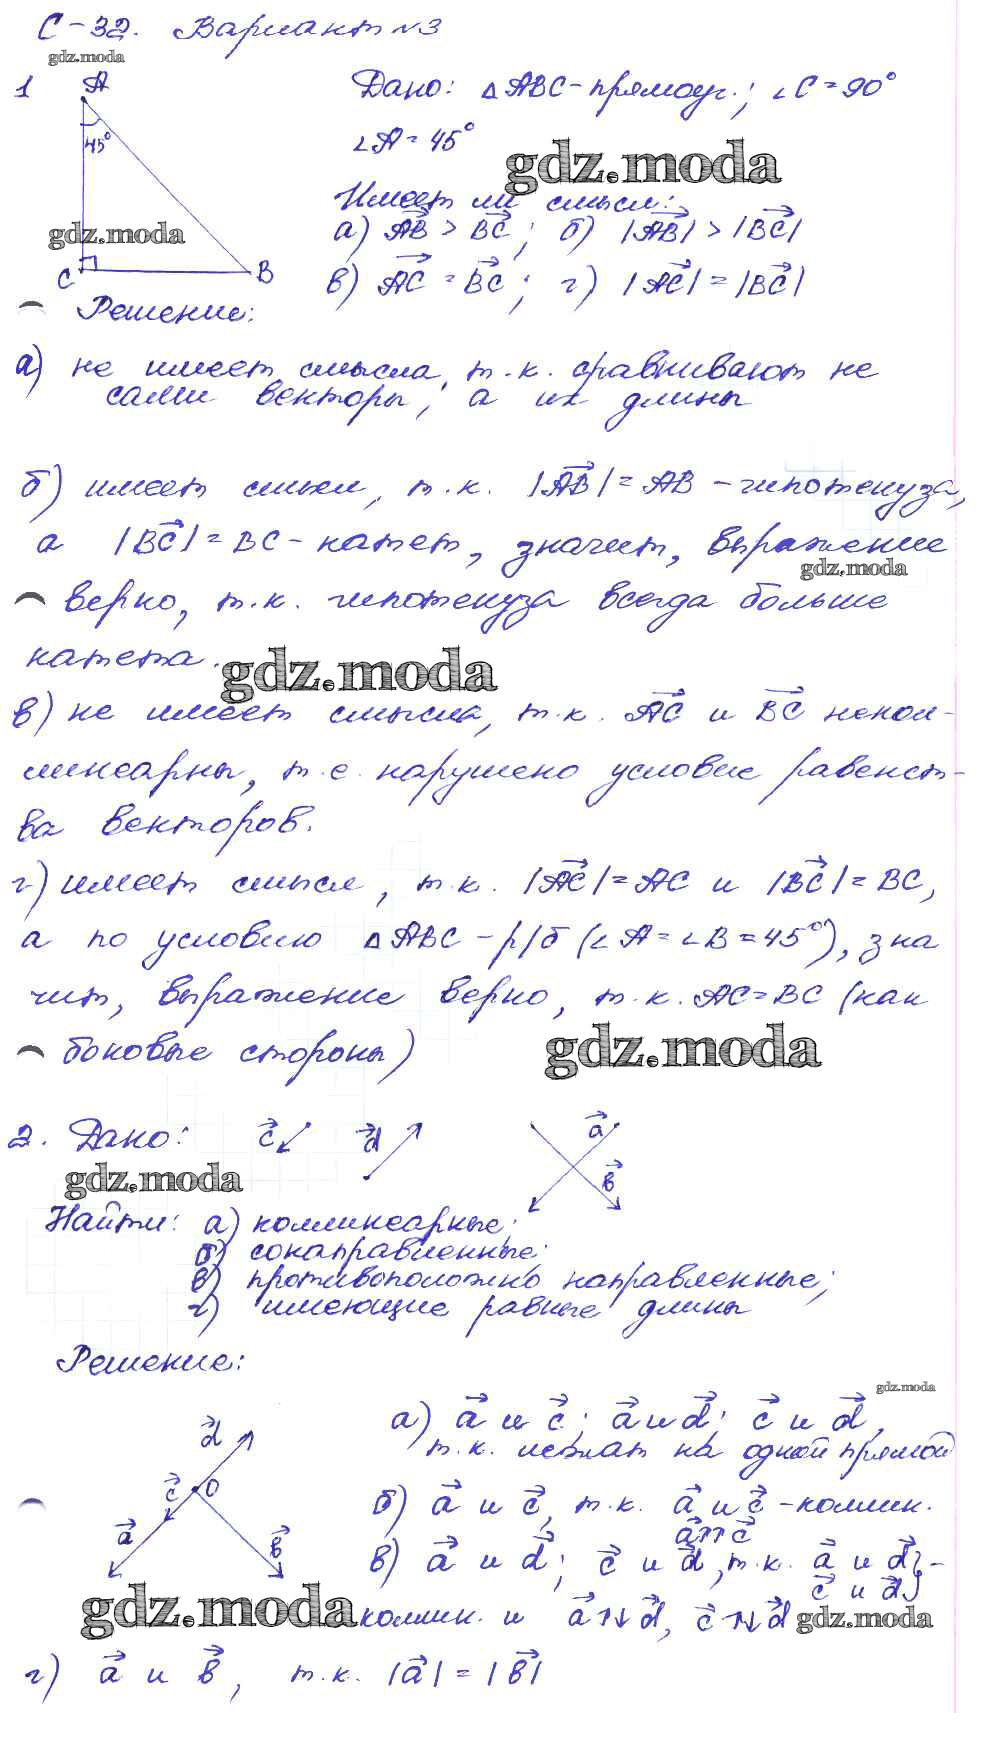 С-32. Вариант №3
gdz.moda
1
A
45°
C
B
Дано: △ABC-прямоуг.; ∠C=90°
∠A=45°
gdz.moda
Имеет ли смысл:
gdz.moda
а) AB > BC; б) |AB|>|BC|
в) AC = BC; г) |AC|=|BC|
Решение:
а) не имеет смысла, т.к. сравнивают не
сами векторы, а их длины
б) имеет смысл, т.к. |AB|=AB-гипотенуза,
а |BC|=BC-катет, значит, выражение
gdz.moda
верно, т.к. гипотенуза всегда больше
катета.
gdz.moda
в) не имеет смысла, т.к. AC и BC некол-
линеарны, т.е. нарушено условие равенст-
ва векторов.
г) имеет смысл, т.к. |AC|=AC и |BC|=BC,
а по условию △ABC-р/б (∠A=∠B=45°), зна
чит, выражение верно, т.к. AC=BC (как
боковые стороны)
gdz.moda
2. Дано: c d a b
gdz.moda
Найти: а) коллинеарные;
б) сонаправленные;
в) противоположно направленные;
г) имеющие равные длины
Решение:
gdz.moda
d
c O
a b
а) a и c; a и d; c и d,
т.к. лежат на одной прямой
б) a и c, т.к. a и c -коллин.
a↑↑c
в) a и d; c и d, т.к. a и d}-
c и d}
gdz.moda
коллин. и a↑↓d, c↑↓d
gdz.moda
г) a и b, т.к. |a|=|b|